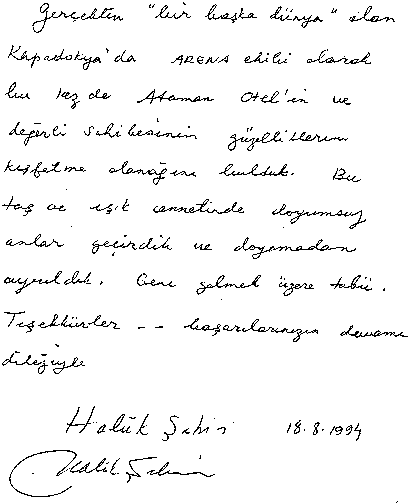 Gerçekten "bir başka dünya" olan
Kapadokya'da ARENA ekibi olarak
bu kez de Ataman Otel'in ve
değerli sahibesinin güzelliklerini
keşfetme olanağını bulduk. Bu
taş ve ışık cennetinde doyumsuz
anlar geçirdik ve doyamadan
ayrıldık. Gene gelmek üzere tabii.
Teşekkürler -- başarılarınızın devamı
dileğiyle
Haluk Şahin 18.8.1994
Haluk Şahin